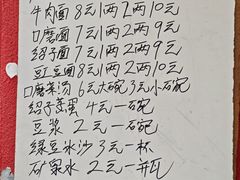 牛肉面8元1两2两10元
口磨面7元1两2两9元
绍子面7元1两2两9元
豇豆面8元1两2两10元
口磨菜汤6元大碗3元小石碗
绍子蒸蛋4元一碗
豆浆2元一石碗
绿豆冰沙3元一杯
矿泉水2元一并瓦